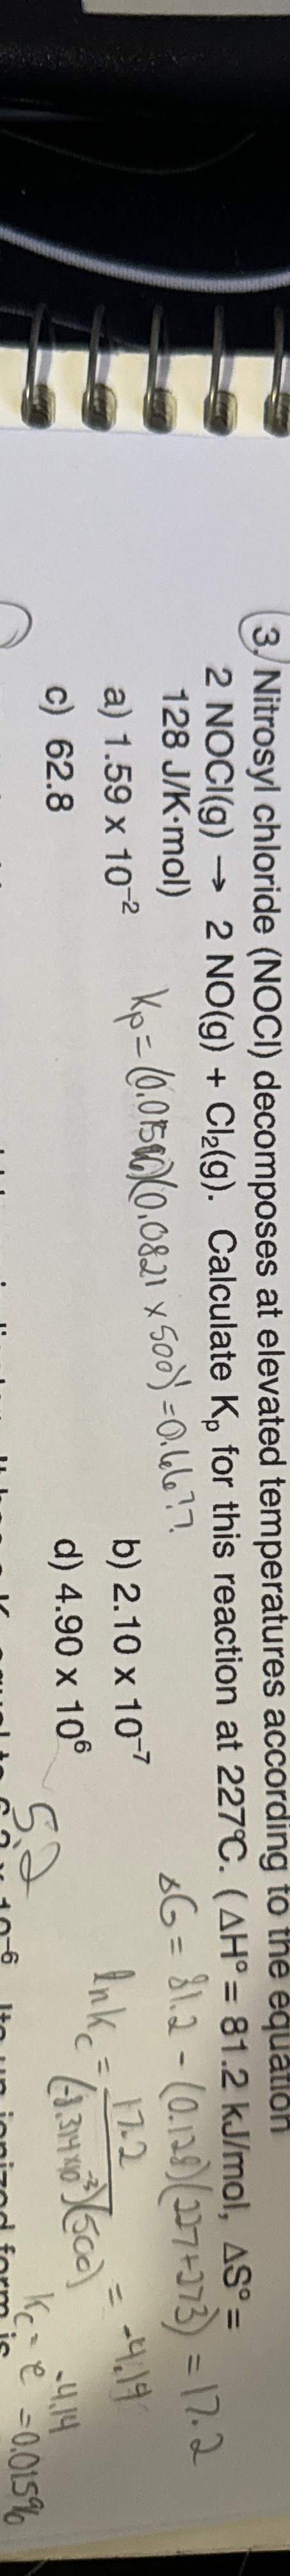 3. Nitrosyl chloride (NOCl) decomposes at elevated temperatures according to the equation
2 NOCl(g) → 2 NO(g) + Cl₂(g). Calculate Kₚ for this reaction at 227°C. (ΔH° = 81.2 kJ/mol, ΔS° =
128 J/K·mol)
ΔG = 81.2 - (0.128)(227+273) = 17.2
a) 1.59 x 10⁻²
b) 2.10 x 10⁻⁷
Kp = (0.0159)(0.0821 x 500)¹ = 0.667?.
ln Kc = 17.2 / (-8.314x10⁻³)(500) = -4.14
c) 62.8
d) 4.90 x 10⁶
Kc = e^-4.14 = 0.0159